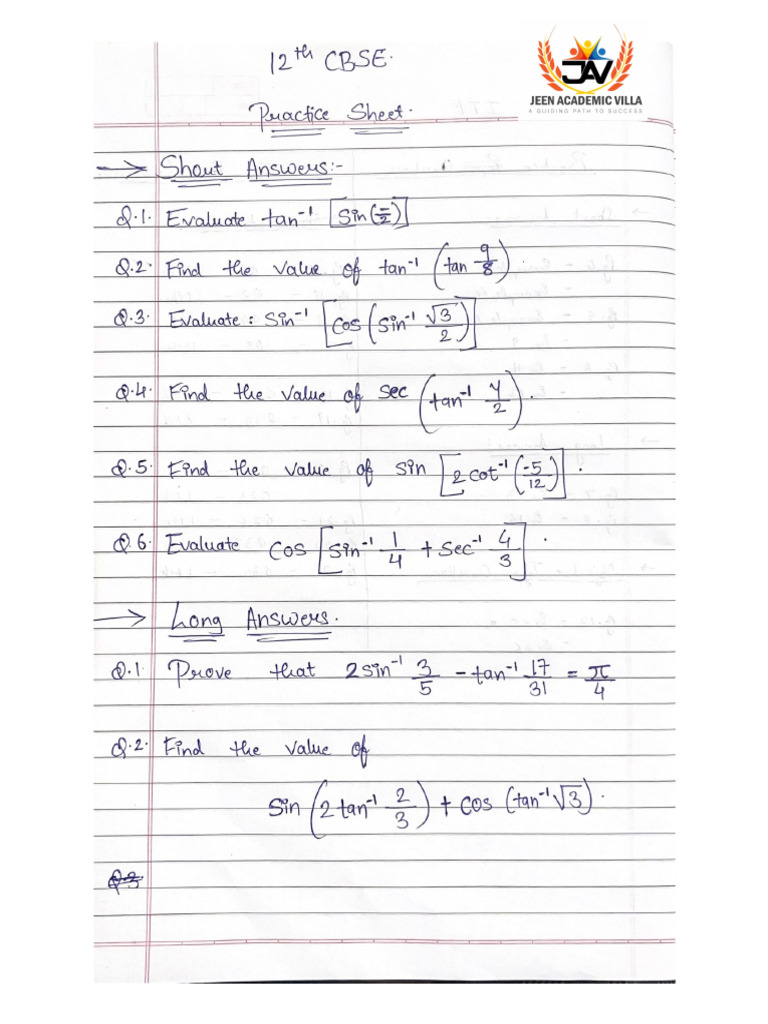 12th CBSE.
JAV
JEEN ACADEMIC VILLA
A GUIDING PATH TO SUCCESS
Practice Sheet.
→ Shout Answers:-
Q.1. Evaluate tan⁻¹ [sin(-/2)]
Q.2. Find the value of tan⁻¹ (tan 9/8).
Q.3. Evaluate: Sin⁻¹ [cos(sin⁻¹ √3/2)]
Q.4. Find the value of sec (tan⁻¹ y/2).
Q.5. Find the value of sin [2 cot⁻¹(-5/12)].
Q.6. Evaluate cos [sin⁻¹ 1/4 + sec⁻¹ 4/3].
→ Long Answers.
Q.1. Prove that 2sin⁻¹ 3/5 - tan⁻¹ 17/31 = π/4
Q.2. Find the value of
Sin (2 tan⁻¹ 2/3) + cos (tan⁻¹ √3).